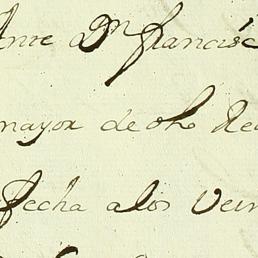 Ante Dn francisc
mayor de dho Rea
fecha a los Vein